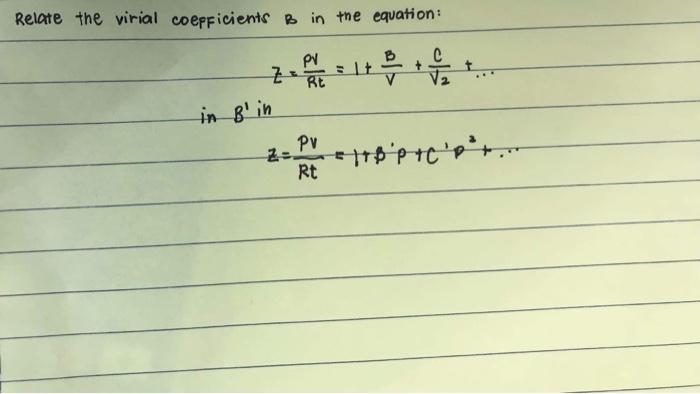 Relate the virial coefficients B in the equation:
Z = PV/Rt = 1 + B/V + C/V2 + ...
in B' in
Z = PV/Rt = 1 + B'P + C'P² + ...